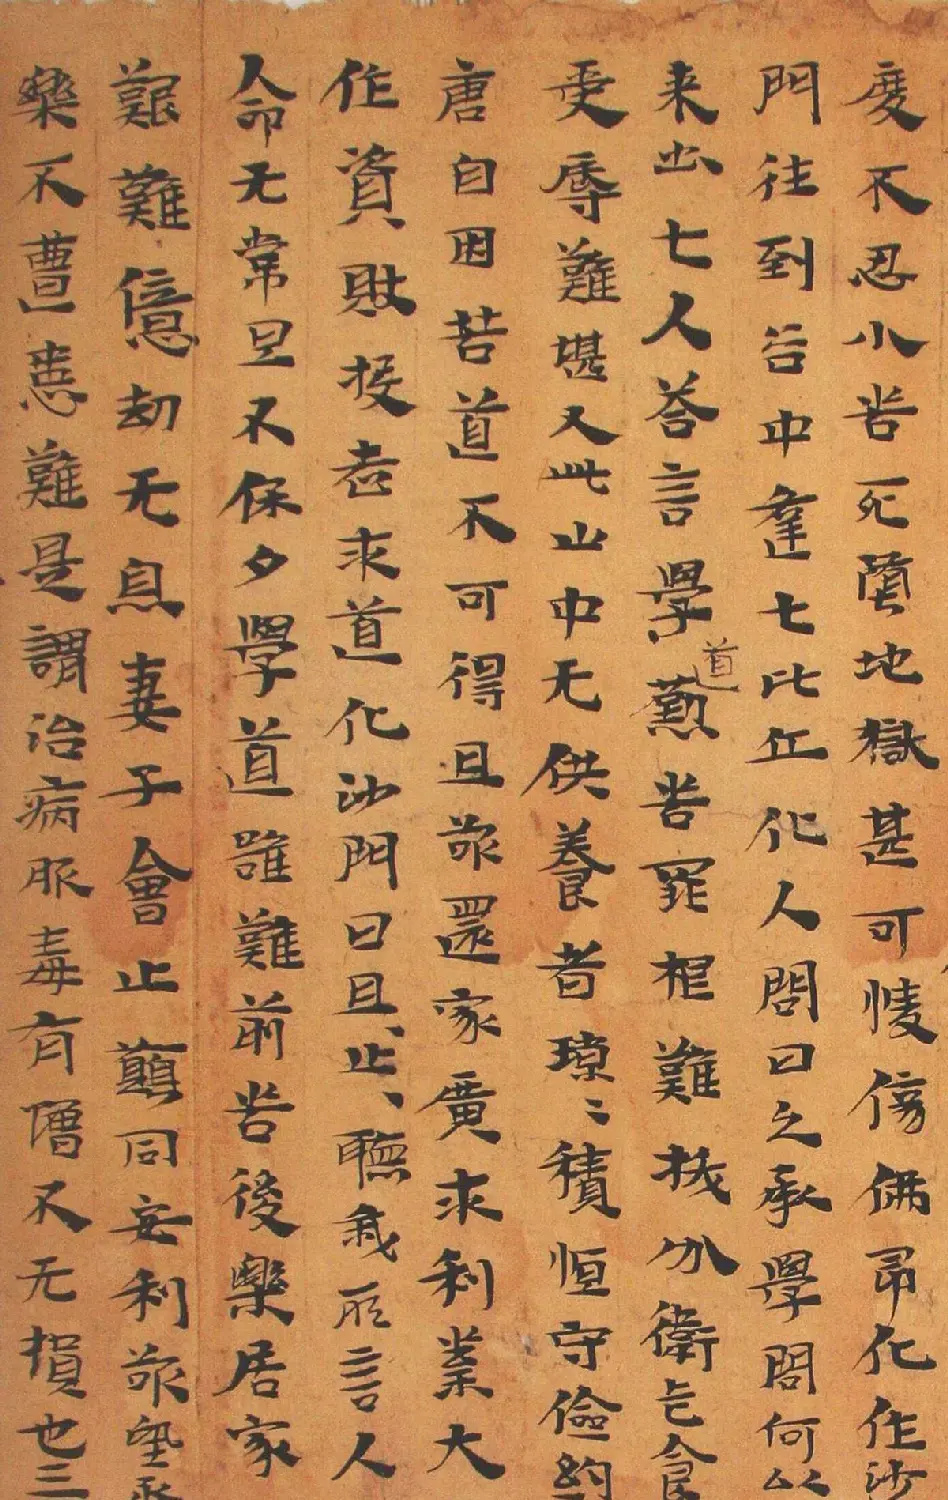 度不忍小苦死墮地獄甚可憐傷佛即化作沙
門往到谷中逢七比丘化人問曰久承學問何以
来出七人荅言學道懃苦罪根難拔分衛乞食
受辱難堪又此山中无供養者璅〻積恒守儉約
唐自困苦道不可得且欲還家廣求利業大
作資財投老求道化沙門曰且〻止〻聽我所言人
命无常旦不保夕學道雖難前苦後樂居家
艱難億劫无息妻子會止願同安利欲望永
樂不遭患難是謂治病服毒有增不无損也三